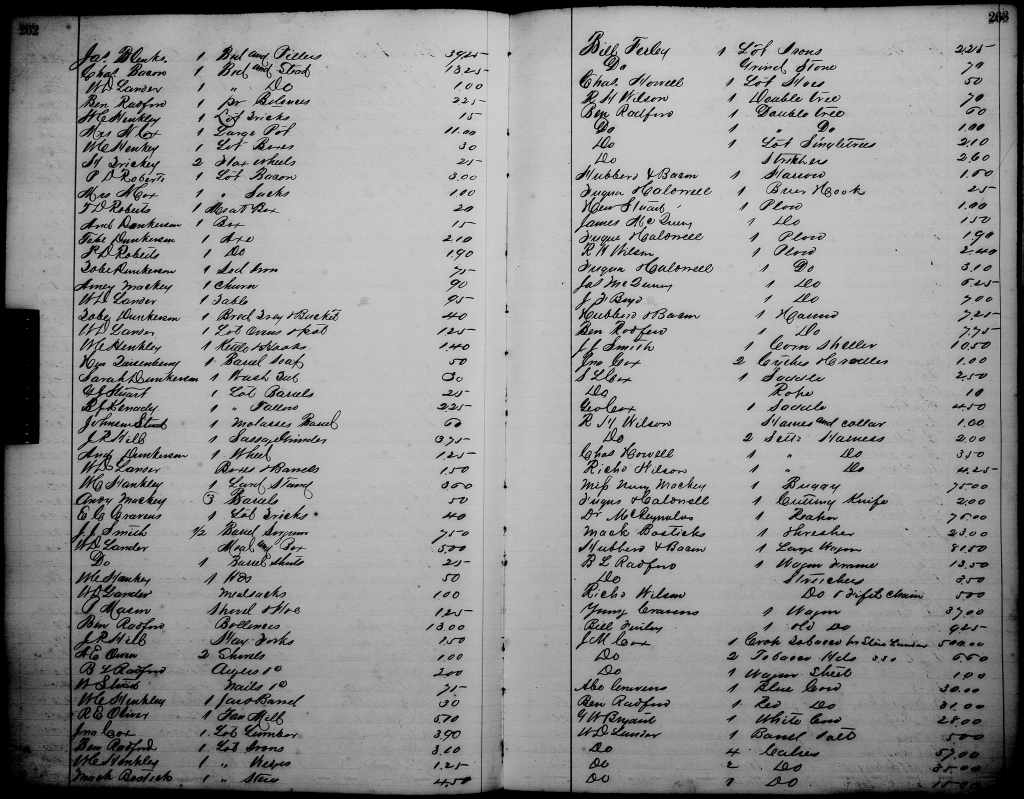 262
Jas. Blenks. 1 Bed and Pillers 39.25
Chas Bacon 1 Bed and Stead 13.25
W D Lander 1 " Do 1.00
Ben Radford 1 pr Belences 2.25
W C Henkley 1 Lot Tricks 15
Mrs N Cox 1 Large Pot 11.00
W C Henkey 1 Lot Boxes 30
2 Flax wheels 25
P D Roberts 1 Lot Bacon 3.00
Mrs N Cox 1 " Sacks 1.00
F D Roberts 1 Meat Box 20
And Dunkerson 1 Box 15
Tobe Dunkerson 1 Axe 2.10
P D Roberts 1 Do 1.90
Tobe Dunkerson 1 Sad Iron 75
Amey Mackey 1 Churn 90
W D Lander 1 Table 95
Toby Dunkerson 1 Bred Tray & Bucket 40
W D Lander 1 Lot Ovens & Pot 1.25
W C Henkley 1 Kettle & Hooks 1.40
1 Barel Soap 50
Sarah Dunkerson 1 Wash Tub 30
Stuart 1 Lot Barels 25
Kenady 1 " 2.25
Johnson Stuart 1 Molasses Barel 60
J R Hill 1 Grinder 3.75
Andy Dunkerson 1 Wheel 1.25
W D Lander Boxes & Barrels 1.50
W C Hankley 1 Lard Stand 3.00
Mackey 3 Barels 50
E C Gravens 1 Lot Tricks 40
J J Smith 1/2 Barel Sorgum 7.50
W D Lander Meal and Box 5.00
Do 1 Barrel 25
W C Hankey 1 50
W D Lander Mealsacks 1.00
P Mason Shovel & Hoe 1.25
Ben Radford 13.00
J R Hill Hay Forks 1.50
R E Owen 2 Shovels 1.00
B L Radford Augers 2.00
W Stuart Nails 75
W C Henkley 1 Barrel 30
R E Oliver 1 Fan Mill
Jno Cox 1 Lot Lumber 3.90
Ben Radford 1 Lot Irons 3.10
W C Henkley 1 " 1.25
Mack Bostick 1 " 4.50
263
Bill Ferley 1 Lot Irons 2.25
Do Grind Stone 70
Chas. Howell 1 Lot Hoes 50
R H Wilson 1 Double tree 70
Ben Radford 1 Double tree 60
Do 1 " Do 1.00
Do 1 Lot Singletrees 2.10
Do Stretchers 2.60
Hubbard & Bacon 1 Harrow 1.50
Fuqua & Caldwell 1 Brier Hook 25
Stuart 1 Plow 1.00
James McQuery 1 Do 1.50
Fuqua & Caldwell 1 Plow 1.90
R H Wilson 1 Plow 2.40
Fuqua & Caldwell 1 Do 3.10
Jas McQuery 1 Do 6.25
J F Boyd 1 Do 7.00
Hubbard & Bacon 1 7.25
Ben Radford 1 Do 7.75
J J Smith 1 Corn Sheller 10.50
Jno Cox 2 Cythes & Cradles 1.00
S L Cox 1 Saddle 2.50
Do Rope 10
Geo Cox 1 Saddle 4.50
R H Wilson Hames and collar 1.00
Do 2 Setts Harness 2.00
Chas Howell 1 " Do 3.50
Richd Wilson 1 " Do 4.25
Miss Mackey 1 Buggy 75.00
Fuqua & Caldwell 1 Cutting Knife 2.00
Dr McReynolds 1 Reaper 75.00
Mack Bosticks 1 Thresher 23.00
Hubbard & Bacon 1 Large Wagon 81.50
B L Radford 1 Wagon Frame 13.50
Do Stretchers 3.50
Richd Wilson Do & Fifth chain 5.00
Cravens 1 Wagon 37.00
Bill Finley 1 old Do 9.25
J M Cox 1 Crop Tobacco 500.00
Do 2 Tobacco 330 6.60
Do 1 Wagon Sheet 1.00
Abe Cravens 1 Blue Cow 30.00
Ben Radford 1 Red Do 31.00
G W Bryant 1 White Cow 28.00
W D Lander 1 Barrel Salt 5.00
Do 4 Calves 57.00
Do 2 Do 35.00
Do 1 Do